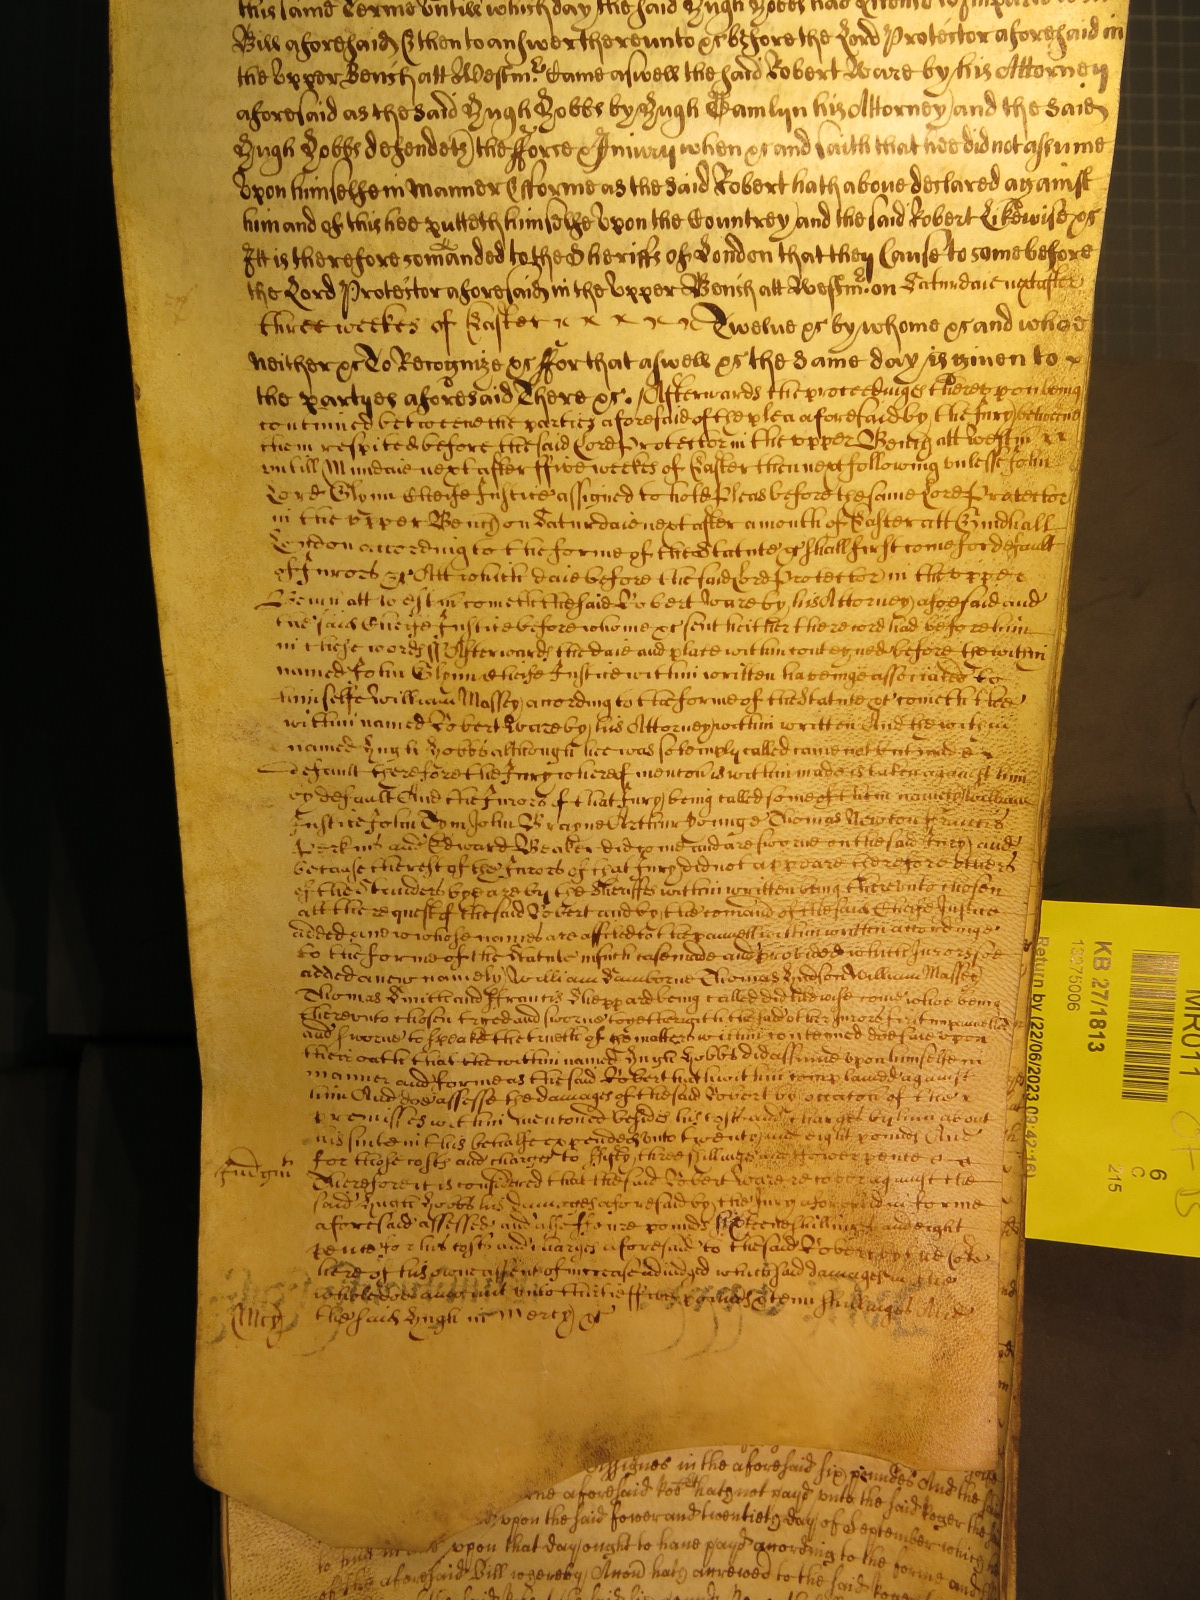 this same Terme untill which day the said Hugh Hobbs had
Bill aforesaid & then to answer thereunto &c before the Lord Protector aforesaid in
the Upper Bench att Westmr Came aswell the said Robert Ware by his Attorney
aforesaid as the said Hugh Hobbs by Hugh Tamlyn his Attorney and the said
Hugh Hobbs defendeth the fforce & Iniury when &c and saith that hee did not assume
Upon himselfe in manner & forme as the said Robert hath aboue declared against
him and of this hee putteth himselfe Upon the Countrey and the said Robert Likewise &c
It is therefore comanded to the Sheriffs of London that they Cause to come before
the Lord Protector aforesaid in the Upper Bench att Westmr on Saturdaie next after
three weekes of Easter Twelue &c by whome &c and whoe
neither &c To Recognize &c ffor that aswell &c the same day is giuen to
the partyes aforesaid There &c. Afterwards the proceedinges thereupon being
continued betweene the parties aforesaid of the plea aforesaid by the Jury betweene
them respited before the said Lord Protector in the upper Bench att Westm
untill Mundaie next after ffive weekes of Easter then next following unlesse John
Lord Glynn Cheife Justice assigned to hold Pleas before the same Lord Protector
in the upper Bench on Saturdaie next after a month of Easter att Guildhall
London according to the forme of the Statute &c shall first come for default
of Jurors &c Att which daie before the said Lord Protector in the upper
Bench att Westm cometh the said Robert Ware by his Attorney aforesaid and
the said Cheife Justice before whome &c sent hether the record had before him
in these words Afterwards the daie and place within conteyned before the within
named John Glynn Cheife Justice within written haveinge associated to
himselfe William Massey according to the forme of the Statute &c cometh the
within named Robert Ware by his Attorney within written And the within
named Hugh Hobbs although hee was solemply called came not but made
default Therefore the Jury whereof mencon is within made is taken against him
by default And the Jurors of that Jury being called some of them namely William
Justice John Tym John Brayne Arthur Younge Thomas Newton Francis
Perkins and Edward Beaker did come and are sworne on the said Jury and
because the rest of the Jurors of that Jury did not appeare therefore others
of the Standers by are by the Sheriffs within written being thereunto chosen
att the request of the said Robert and by the comand of the said Cheife Justice
added anew whose names are affiled to the pannell within written accordinge
to the forme of the Statute in such case made and provided which Jurors soe
added anew namely William Thomas Hudson William Massey
Thomas Smith and ffrancis Sheppard being called did likewise come whoe being
thereunto chosen tryed and sworne together with the said other Jurors first impannelled
and sworne to speake the trueth of the matters within conteyned doe saie upon
their oath that the within named Hugh Hobbs did assume upon himselfe in
manner and forme as the said Robert hath within complained against
him And doe assesse the damages of the said Robert by occasion of the
premisses within menconed besides his costs and charges by him about
his suite in this behalfe expended unto twenty and eight pounds And
for those costs and charges to fifty three shillings and fower pence
Judgmt
Therefore it is considered that the said Robert Ware recover against the
said Hugh Hobbs his damages aforesaid by the Jury aforesaid in forme
aforesaid assessed and alsoe foure pounds sixteene shillings and eight
pence for his costs and charges aforesaid to the said Robert by the Cort
here of his owne assent of increase adiudged which said damages in the
whole doe amount unto thirtie ffive pounds & tenn shillinges And
Mcy
the said Hugh in Mercy &c
Assignes in the aforesaid six poundes And the said
aforesaid hath not payd unto the said Roger the
upon the said fower and twentieth day of September which
upon that day ought to haue payd according to the forme and
aforesaid Bill whereby Accon hath accrewed to the said Roger
KB 27/1813
13275006
Return by (22/06/2023 09:42:16)
MR011
6
C
215